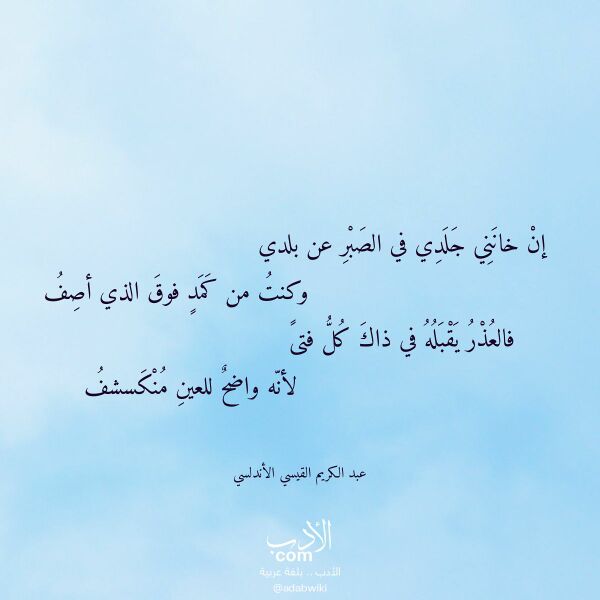 إنْ خانَنِي جَلَدِي في الصَبْرِ عن بلدي
وكنتُ من كَمَدٍ فوقَ الذي أصِفُ
فالعُذْرُ يَقْبَلُهُ في ذاكَ كُلُّ فتىً
لأنّه واضحٌ للعينِ مُنْكَسشفُ
عبد الكريم القيسي الأندلسي
الأدب
com
الأدب .. بلغة عربية
@adabwiki